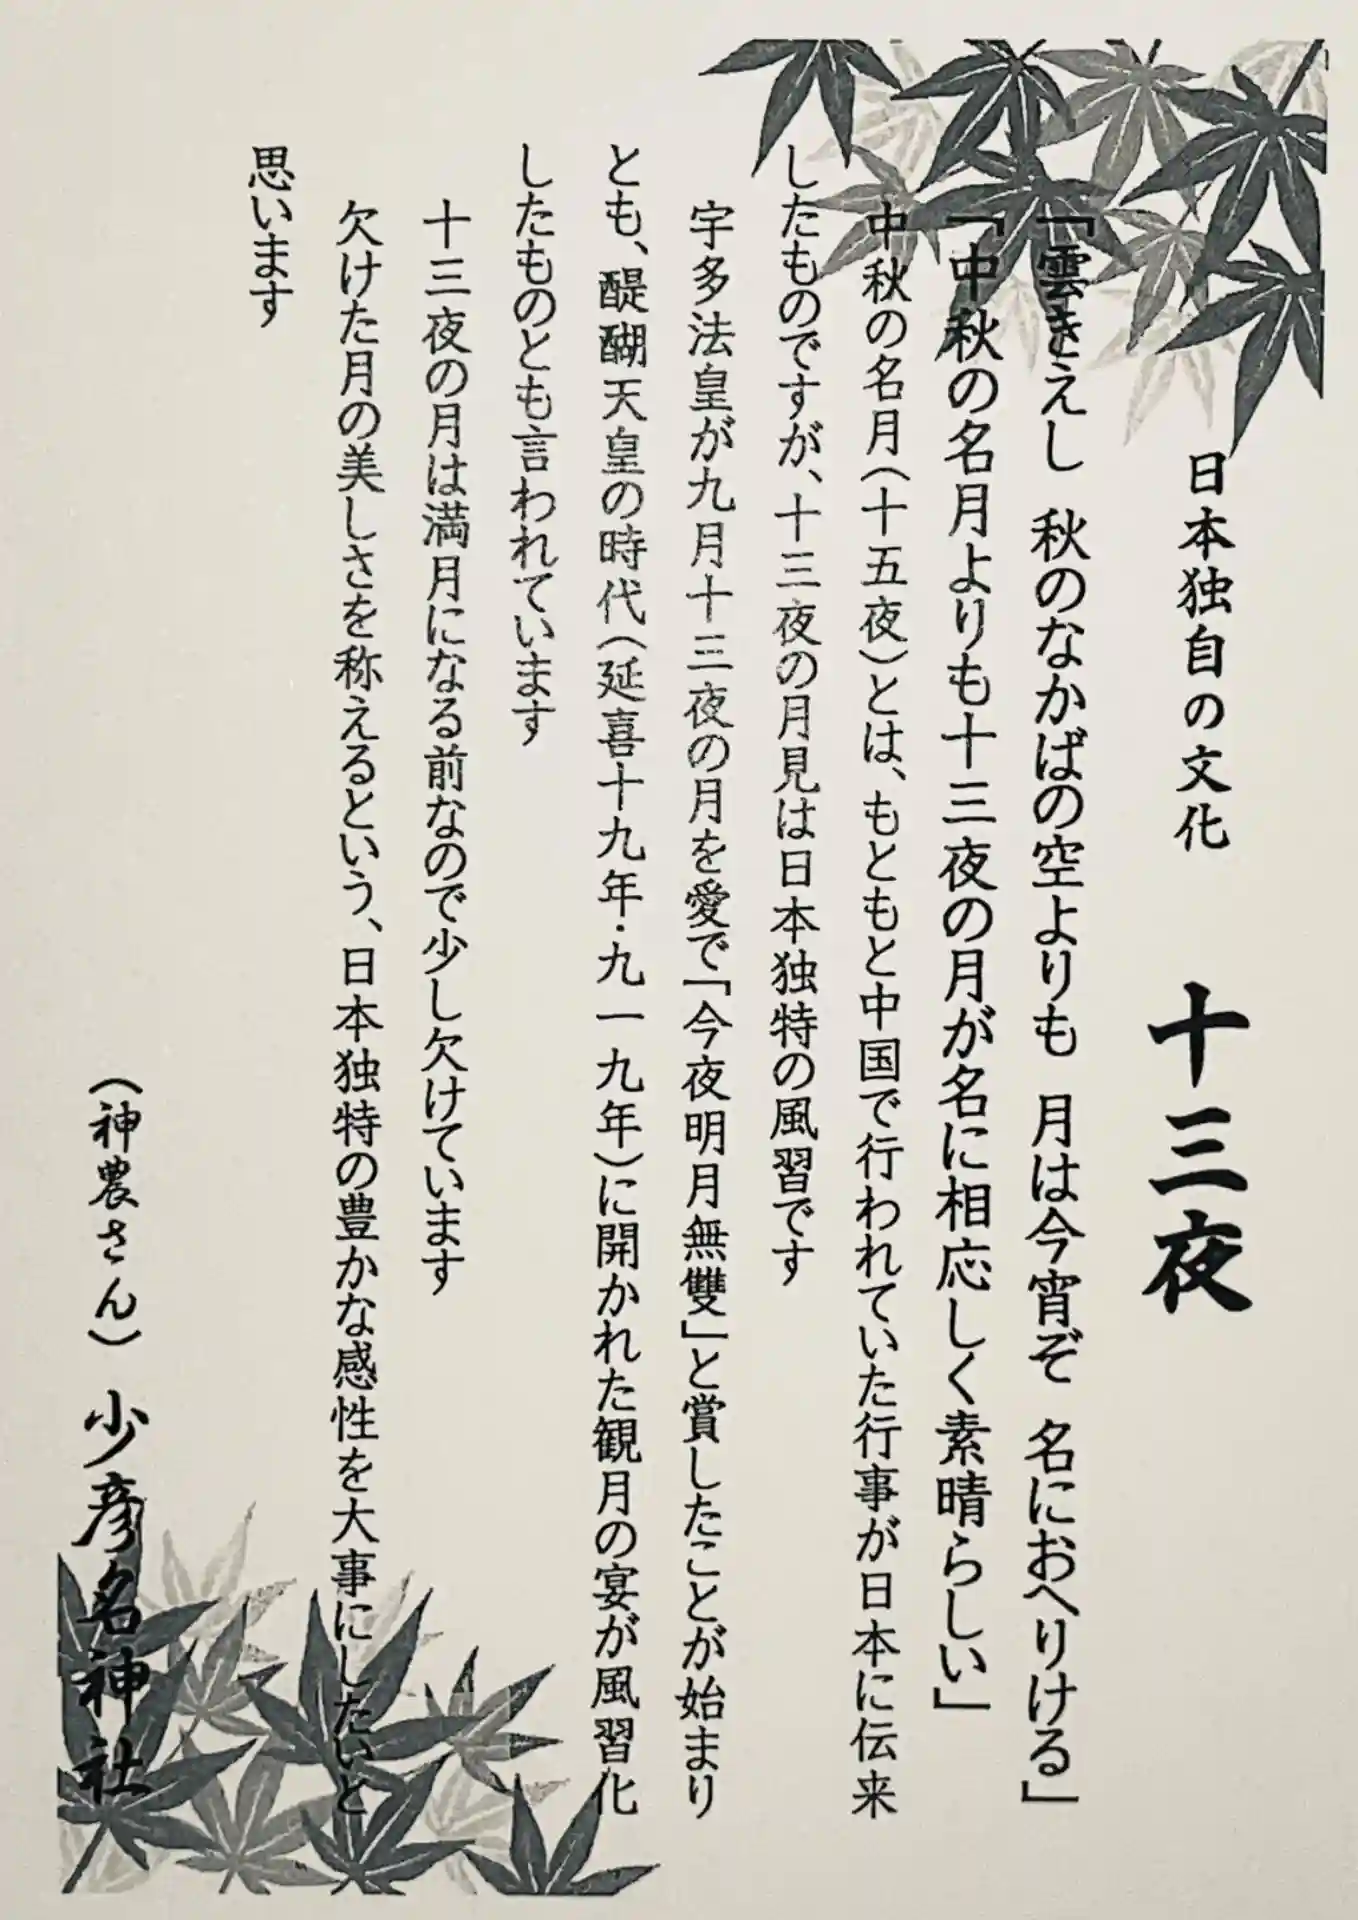 日本独自の文化　十三夜
「雲きえし　秋のなかばの空よりも　月は今宵ぞ　名におへりける」
「中秋の名月よりも十三夜の月が名に相応しく素晴らしい」
中秋の名月(十五夜)とは、もともと中国で行われていた行事が日本に伝来
したものですが、十三夜の月見は日本独特の風習です
宇多法皇が九月十三夜の月を愛で「今夜明月無雙」と賞したことが始まり
とも、醍醐天皇の時代(延喜十九年・九一九年)に開かれた観月の宴が風習化
したものとも言われています
十三夜の月は満月になる前なので少し欠けています
欠けた月の美しさを称えるという、日本独特の豊かな感性を大事にしたいと
思います
(神農さん)　少彦名神社